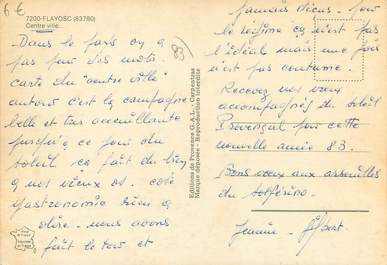 6 €
7200-FLAYOSC (83780)
Centre ville.
83
Dans le pays on a
pas peur des mots.
carte du "centre ville"
autour c'est la campagne
belle et très accueillante
jusqu'à ce jour du
soleil ça fait du bien
à nos vieux os. côté
Gastronomie rien à
dire. nous avons
fait le tour et
Editions de Provence G.A.L. - Carpentras
Marque déposée - Reproduction interdite
jamais déçus. pour
le régime ça n'est pas
l'idéal mais une fois
n'est pas coutume.
Recevez nos vœux
accompagnés du soleil
Provençal pour cette
nouvelle année 83.
Bons vœux aux
du Solférino.
Jeanne - Gilbert